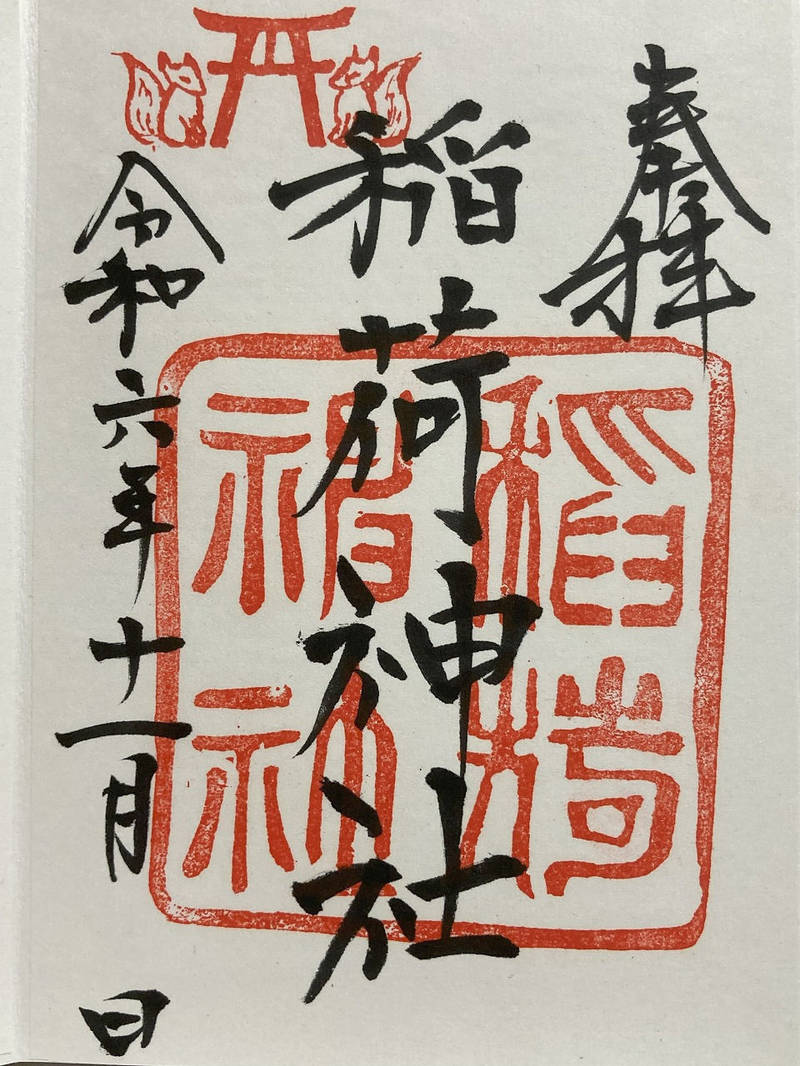 奉拝
稲荷神社
令和六年十一月 日
稲荷神社